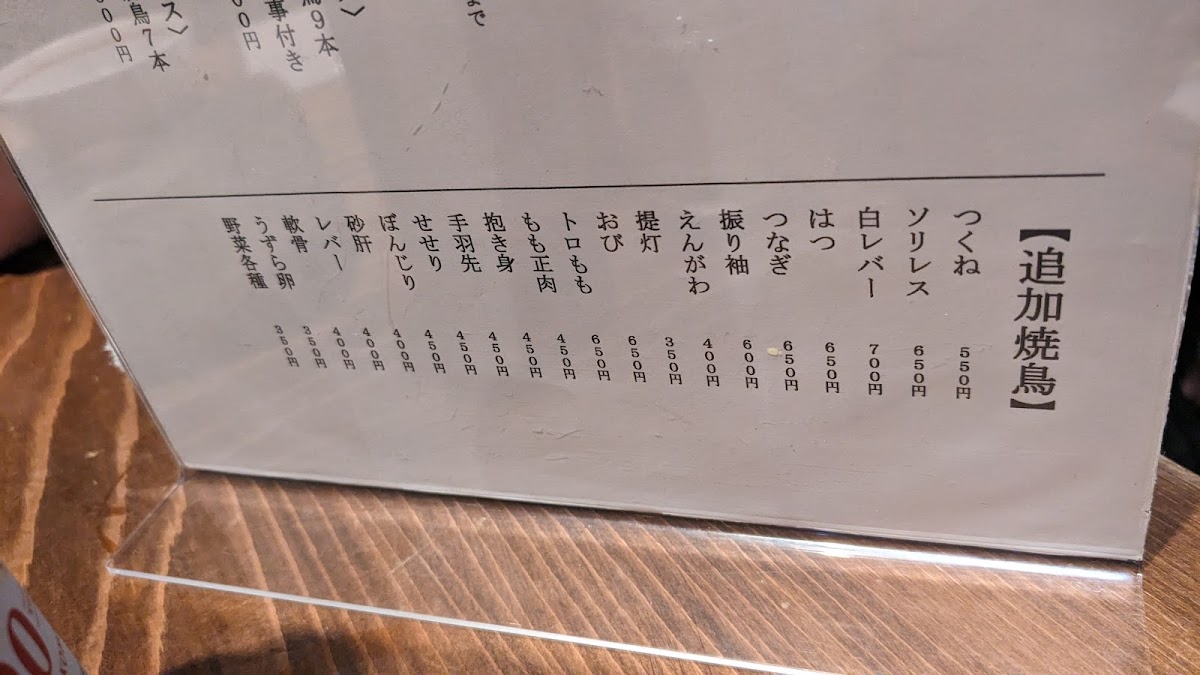 まで
9本〉
事付き
00円
ス〉
鳥7本
000円
【追加焼鳥】
つくね 550円
ソリレス 650円
白レバー 700円
はつ 650円
つなぎ 650円
振り袖 600円
えんがわ 400円
提灯 350円
おび 650円
トロもも 650円
もも正肉 450円
抱き身 450円
手羽先 450円
せせり 450円
ぼんじり 450円
砂肝 400円
レバー 400円
軟骨 400円
うずら卵 350円
野菜各種 350円